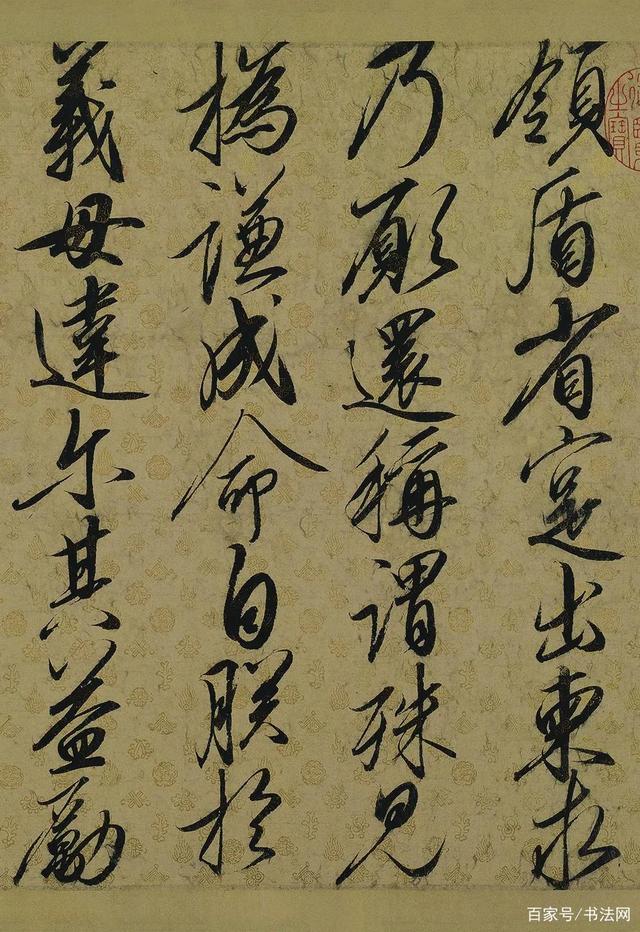 領盾省寔出柬求
乃願還稱謂殊見
撝謙成命自朕於
義毋違尔其益勵
百家号/书法网